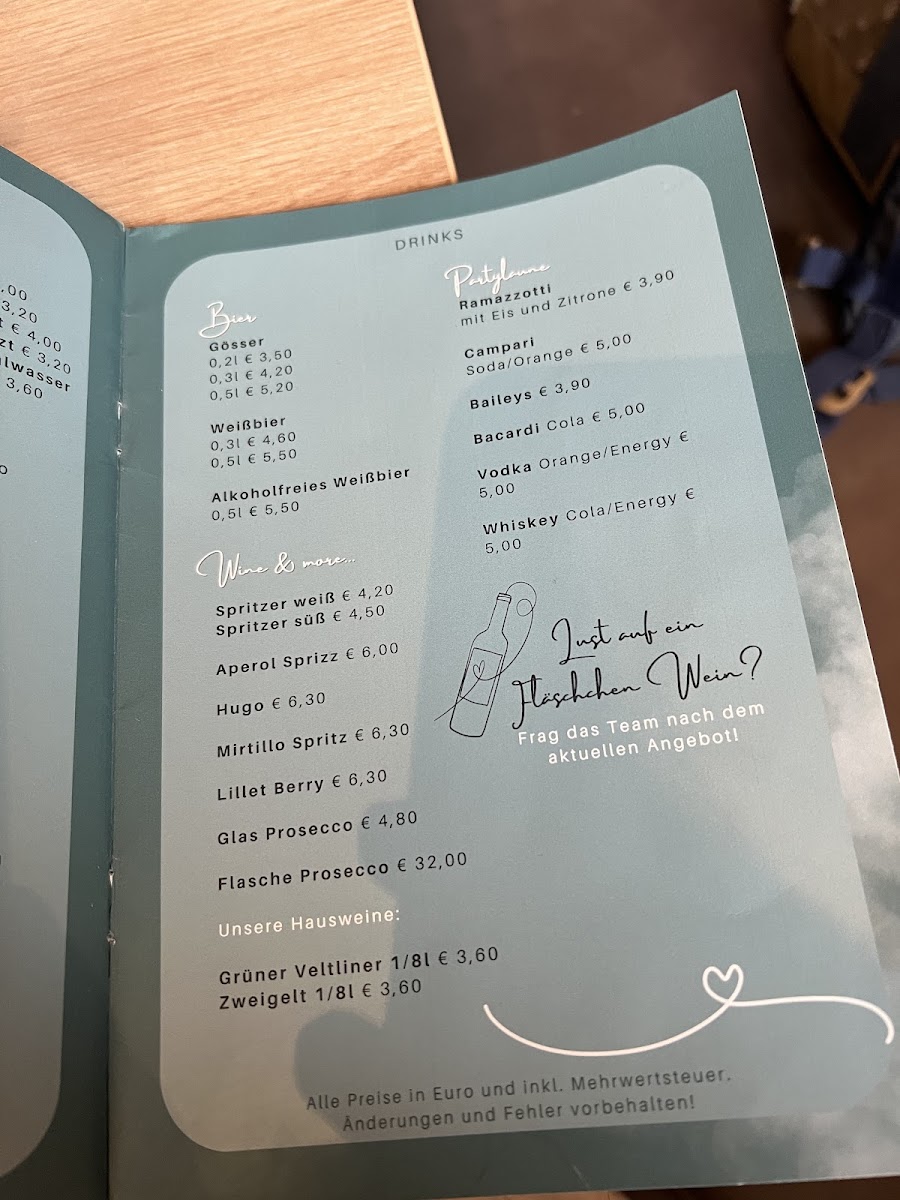 ,00
3,20
t € 4,00
zt € 3,20
lwasser
3,60
DRINKS
Bier
Gösser
0,2l € 3,50
0,3l € 4,20
0,5l € 5,20
Weißbier
0,3l € 4,60
0,5l € 5,50
Alkoholfreies Weißbier
0,5l € 5,50
Wine & more...
Spritzer weiß € 4,20
Spritzer süß € 4,50
Aperol Sprizz € 6,00
Hugo € 6,30
Mirtillo Spritz € 6,30
Lillet Berry € 6,30
Glas Prosecco € 4,80
Flasche Prosecco € 32,00
Unsere Hausweine:
Grüner Veltliner 1/8l € 3,60
Zweigelt 1/8l € 3,60
Partylaune
Ramazzotti
mit Eis und Zitrone € 3,90
Campari
Soda/Orange € 5,00
Baileys € 3,90
Bacardi Cola € 5,00
Vodka Orange/Energy €
5,00
Whiskey Cola/Energy €
5,00
Lust auf ein
Fläschchen Wein?
Frag das Team nach dem
aktuellen Angebot!
Alle Preise in Euro und inkl. Mehrwertsteuer.
Änderungen und Fehler vorbehalten!